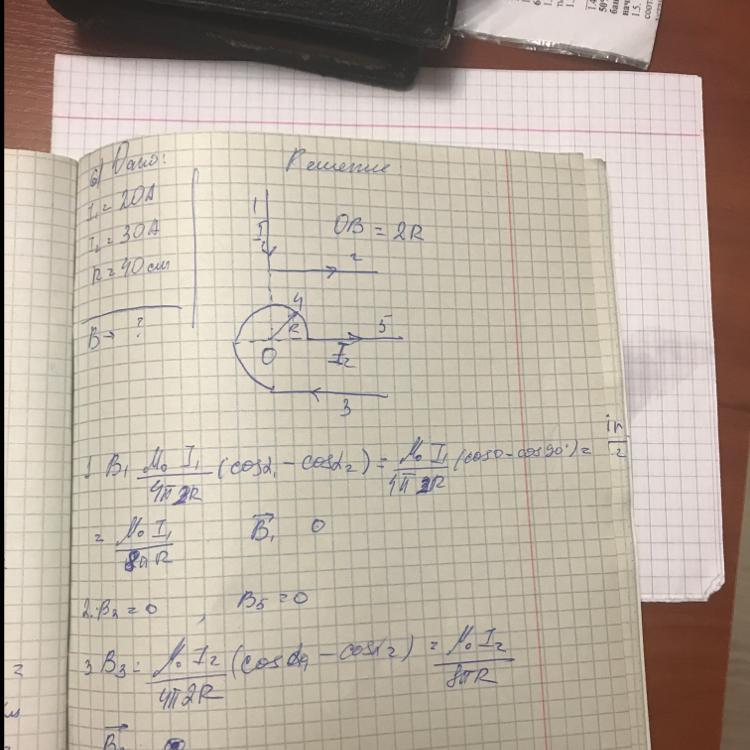 6) Дано:
Решение
I₁ = 20А
I₂ = 30А
R = 40 см
B - ?
1
I₁
OB = 2R
2
4
R
5
O
I₂
3
1 B₁ μ₀ I₁ / 4π 2R (cosα₁ - cosα₂) = μ₀ I₁ / 4π 2R (cos0 - cos90°) =
= μ₀ I₁ / 8πR B⃗₁ 0
2. B₂ = 0 , B₅ = 0
3 B₃ = μ₀ I₂ / 4π2R (cosα₁ - cosα₂) = μ₀ I₂ / 8πR